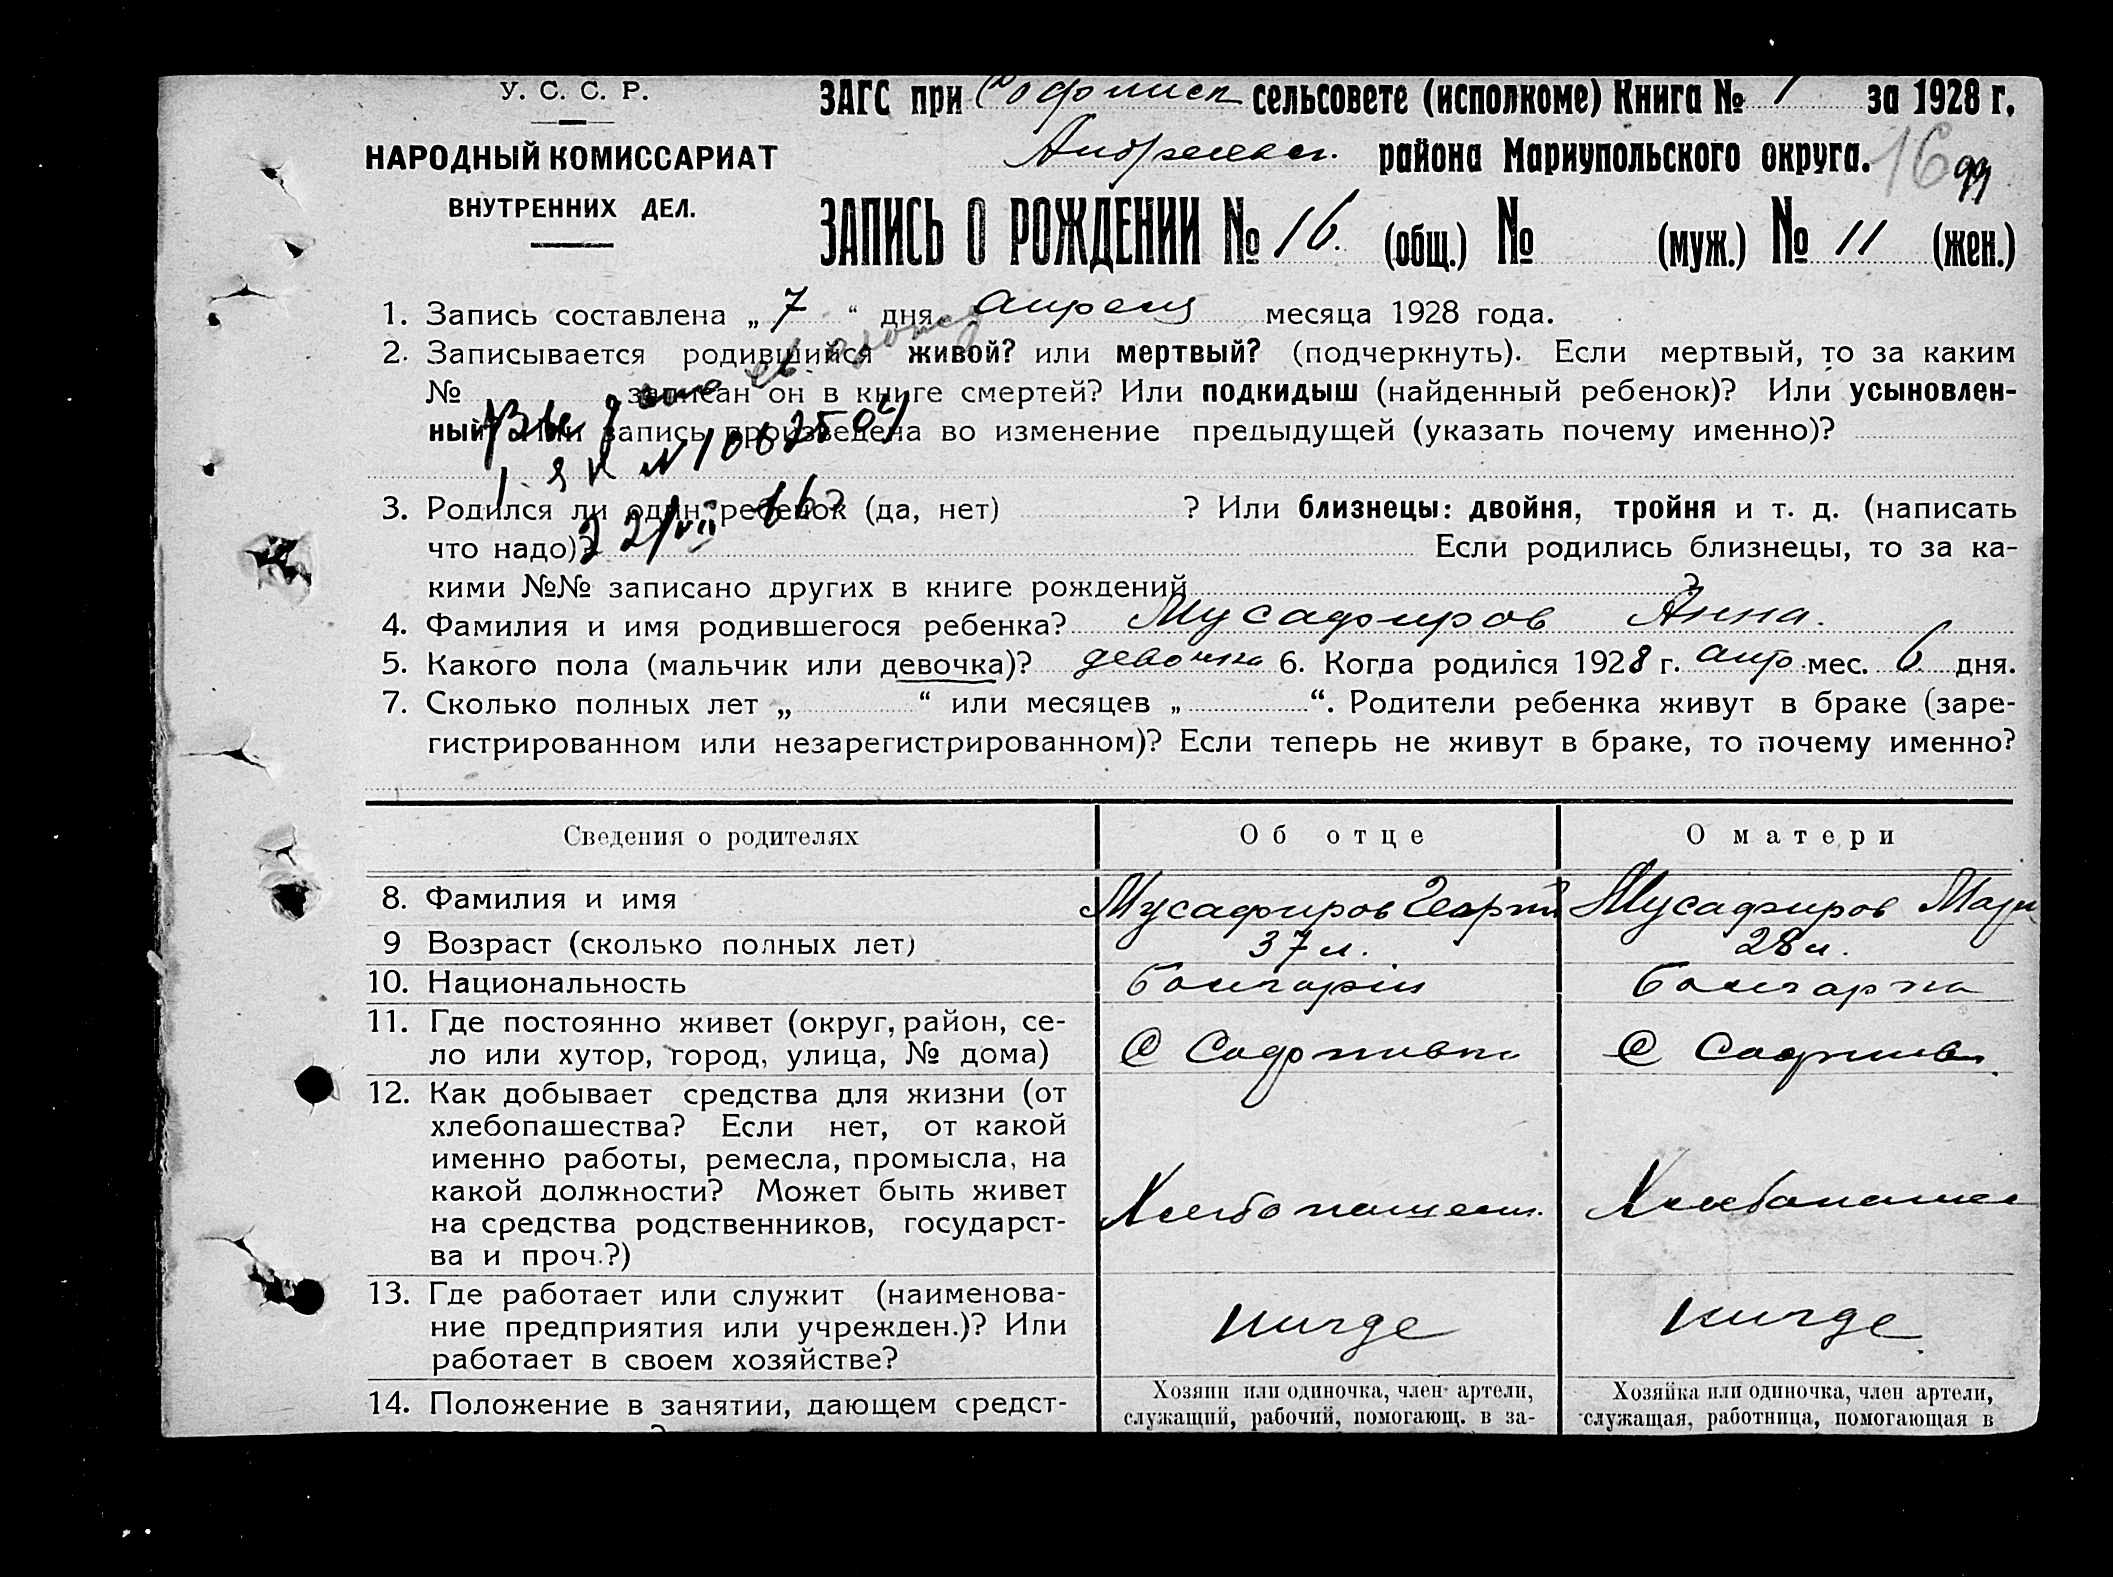 У. С. С. Р.
НАРОДНЫЙ КОМИССАРИАТ
ВНУТРЕННИХ ДЕЛ.
ЗАГС при Софииск сельсовете (исполкоме) Книга № 1 за 1928 г.
Андреевск. района Мариупольского округа.
16 99
ЗАПИСЬ О РОЖДЕНИИ № 16. (общ.) № (муж.) № 11 (жен.)
1. Запись составлена „ 7 “ дня апреля месяца 1928 года.
2. Записывается родившийся живой? или мертвый? (подчеркнуть). Если мертвый, то за каким
№ записан он в книге смертей? Или подкидыш (найденный ребенок)? Или усыновлен-
ный? Или запись произведена во изменение предыдущей (указать почему именно)?
3. Родился ли один ребенок (да, нет) ? Или близнецы: двойня, тройня и т. д. (написать
что надо)? Если родились близнецы, то за ка-
кими №№ записано других в книге рождений
4. Фамилия и имя родившегося ребенка? Мусафиров Анна.
5. Какого пола (мальчик или девочка)? девочка 6. Когда родился 1928 г. апр мес. 6 дня.
7. Сколько полных лет „ “ или месяцев „ “. Родители ребенка живут в браке (заре-
гистрированном или незарегистрированном)? Если теперь не живут в браке, то почему именно?
Сведения о родителях Об отце О матери
8. Фамилия и имя Мусафиров Георгий Мусафиров Мари
9 Возраст (сколько полных лет) 37 л. 28 л.
10. Национальность болгарин болгарка
11. Где постоянно живет (округ, район, се-
ло или хутор, город, улица, № дома) С Софиивки С Софиивк
12. Как добывает средства для жизни (от
хлебопашества? Если нет, от какой
именно работы, ремесла, промысла, на
какой должности? Может быть живет
на средства родственников, государст-
ва и проч.?) Хлебопашест. Хлебопашес
13. Где работает или служит (наименова-
ние предприятия или учрежден.)? Или
работает в своем хозяйстве? нигде нигде
14. Положение в занятии, дающем средст-
Хозяин или одиночка, член артели,
служащий, рабочий, помогающ. в за-
Хозяйка или одиночка, член артели,
служащая, работница, помогающая в